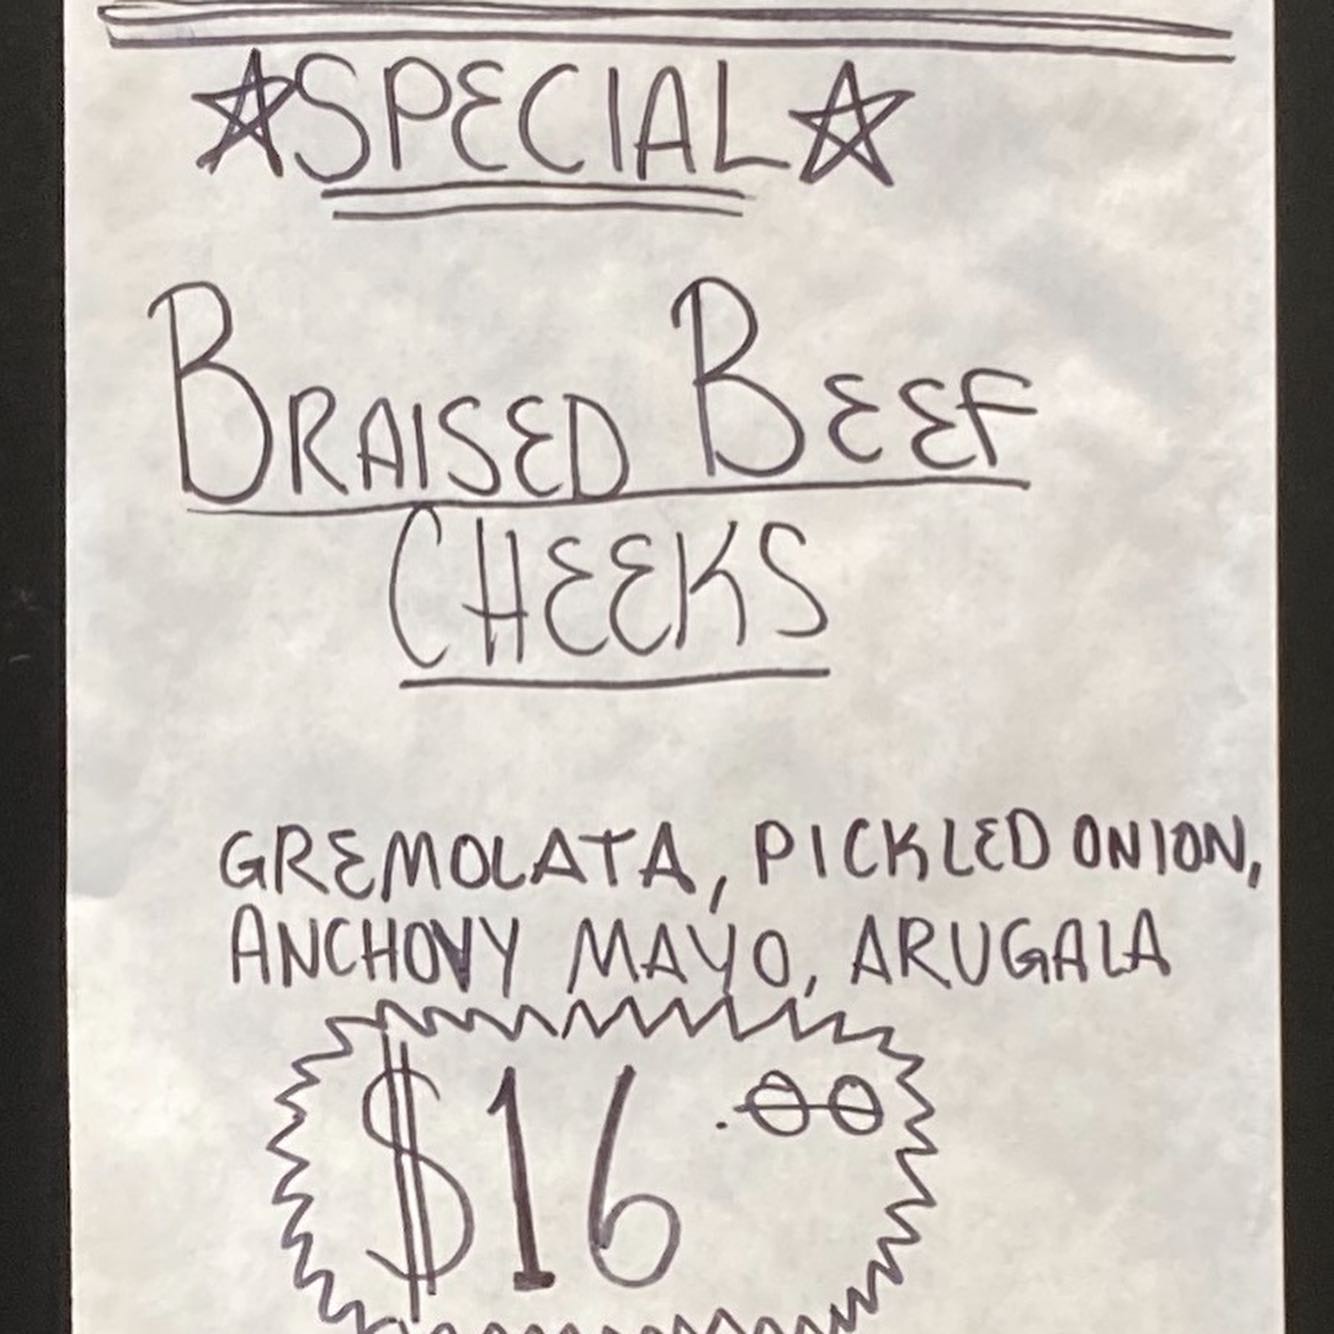 ☆SPECIAL☆
BRAISED BEEF
CHEEKS
GREMOLATA, PICKLED ONION,
ANCHOVY MAYO, ARUGALA
$16.00